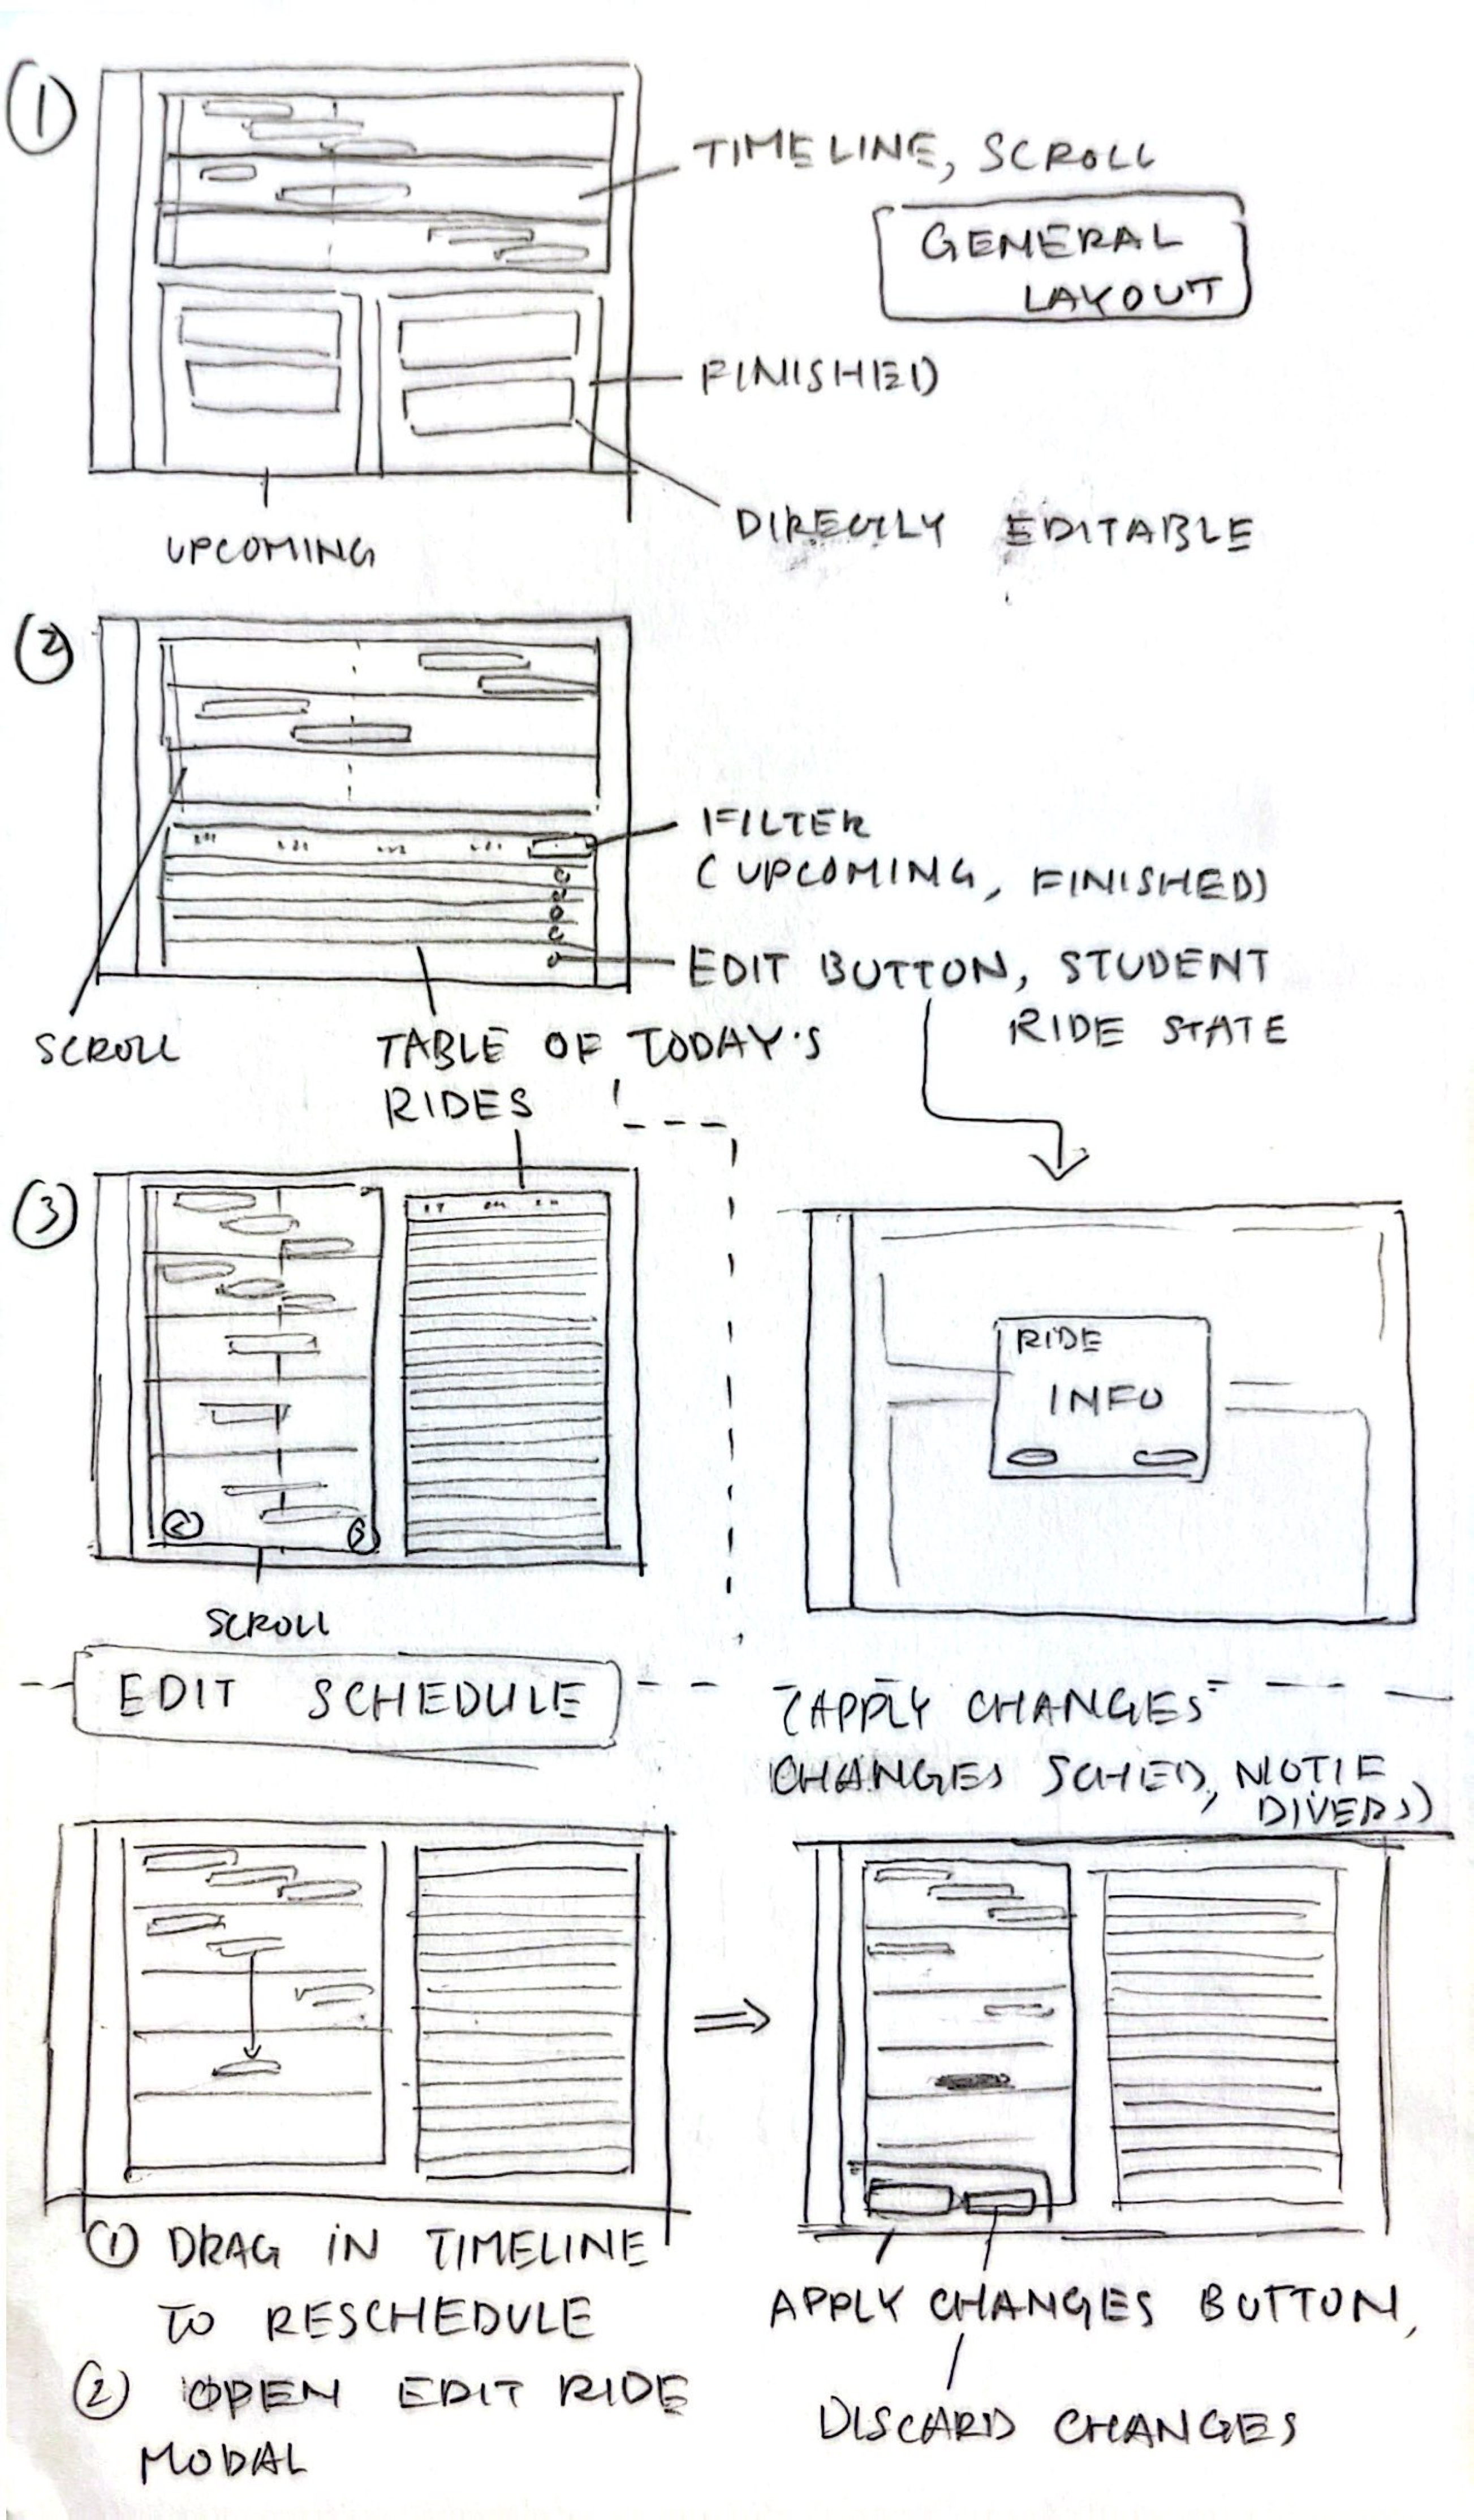 ①
TIMELINE, SCROLL
GENERAL
LAYOUT
FINISHED
DIRECTLY EDITABLE
UPCOMING
②
FILTER
(UPCOMING, FINISHED)
EDIT BUTTON, STUDENT
RIDE STATE
SCROLL
TABLE OF TODAY'S
RIDES
③
RIDE
INFO
SCROLL
EDIT SCHEDULE
(APPLY CHANGES
CHANGES SCHED, NOTIF
DIVERS)
① DRAG IN TIMELINE
TO RESCHEDULE
② OPEN EDIT RIDE
MODAL
APPLY CHANGES BUTTON,
DISCARD CHANGES